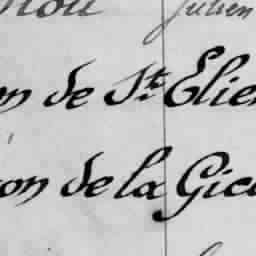 nou Julien
on de Ste Elien
on de la Gica